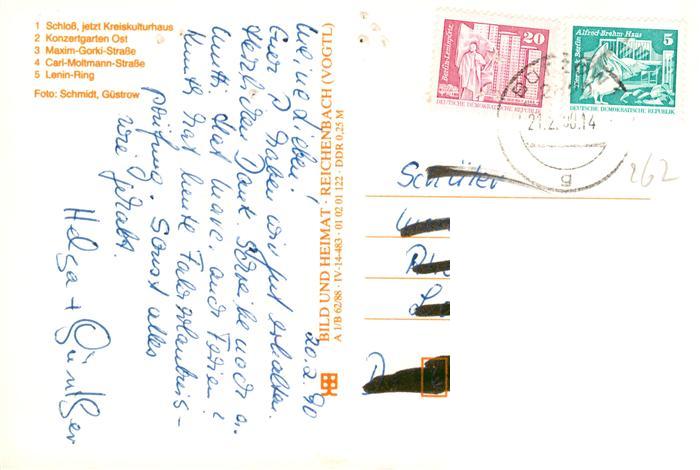 1 Schloß, jetzt Kreiskulturhaus
2 Konzertgarten Ost
3 Maxim-Gorki-Straße
4 Carl-Moltmann-Straße
5 Lenin-Ring
Foto: Schmidt, Güstrow
20.2.90
Meine Lieben!
Euer P haben wir gut erhalten.
Herzlichen Dank. Schreibe noch
hat Marc. auch Ferien?
hat heute Fahrerlaubnis-
prüfung. Sonst alles
wie gehabt.
Helga + Günther
BILD UND HEIMAT · REICHENBACH (VOGTL)
A 1/B 62/88 · IV-14-483 · 01 02 01 122 · DDR 0,25 M
Berlin-Leninplatz
20
DEUTSCHE DEMOKRATISCHE REPUBLIK
Tierpark Berlin Alfred-Brehm-Haus
5
DEUTSCHE DEMOKRATISCHE REPUBLIK
21.2.90.14
g
262
Schüler